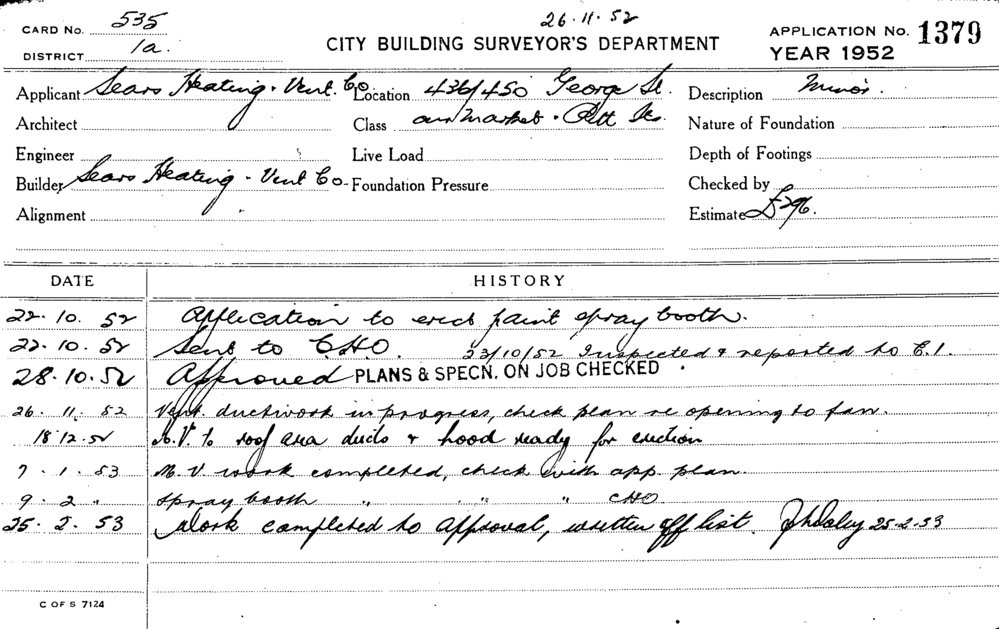 26.11.52
CARD No. 535
DISTRICT 1a.
CITY BUILDING SURVEYOR'S DEPARTMENT
APPLICATION No. 1379
YEAR 1952
Applicant Sears Heating. Vent. Co. Location 436/450 George St. Description Minor.
Architect Class Market. Pitt Sts. Nature of Foundation
Engineer Live Load Depth of Footings
Builder Sears Heating. Vent Co- Foundation Pressure Checked by
Alignment Estimate £296.
DATE HISTORY
22.10.52 Application to erect paint spray booth.
22.10.52 Sent to C.H.O. 23/10/52 Inspected & reported to C.I.
28.10.52 Approved PLANS & SPECN. ON JOB CHECKED
26.11.52 Vent. ductwork in progress, check plan re opening to fan.
18.12.52 to roof area ducts & hood ready for erection
7.1.53 M.V. work completed, check with app. plan.
9.2 " Spray booth " " " CHO
25.2.53 Work completed to approval, written off list. 25-2-53
C OF S 7124